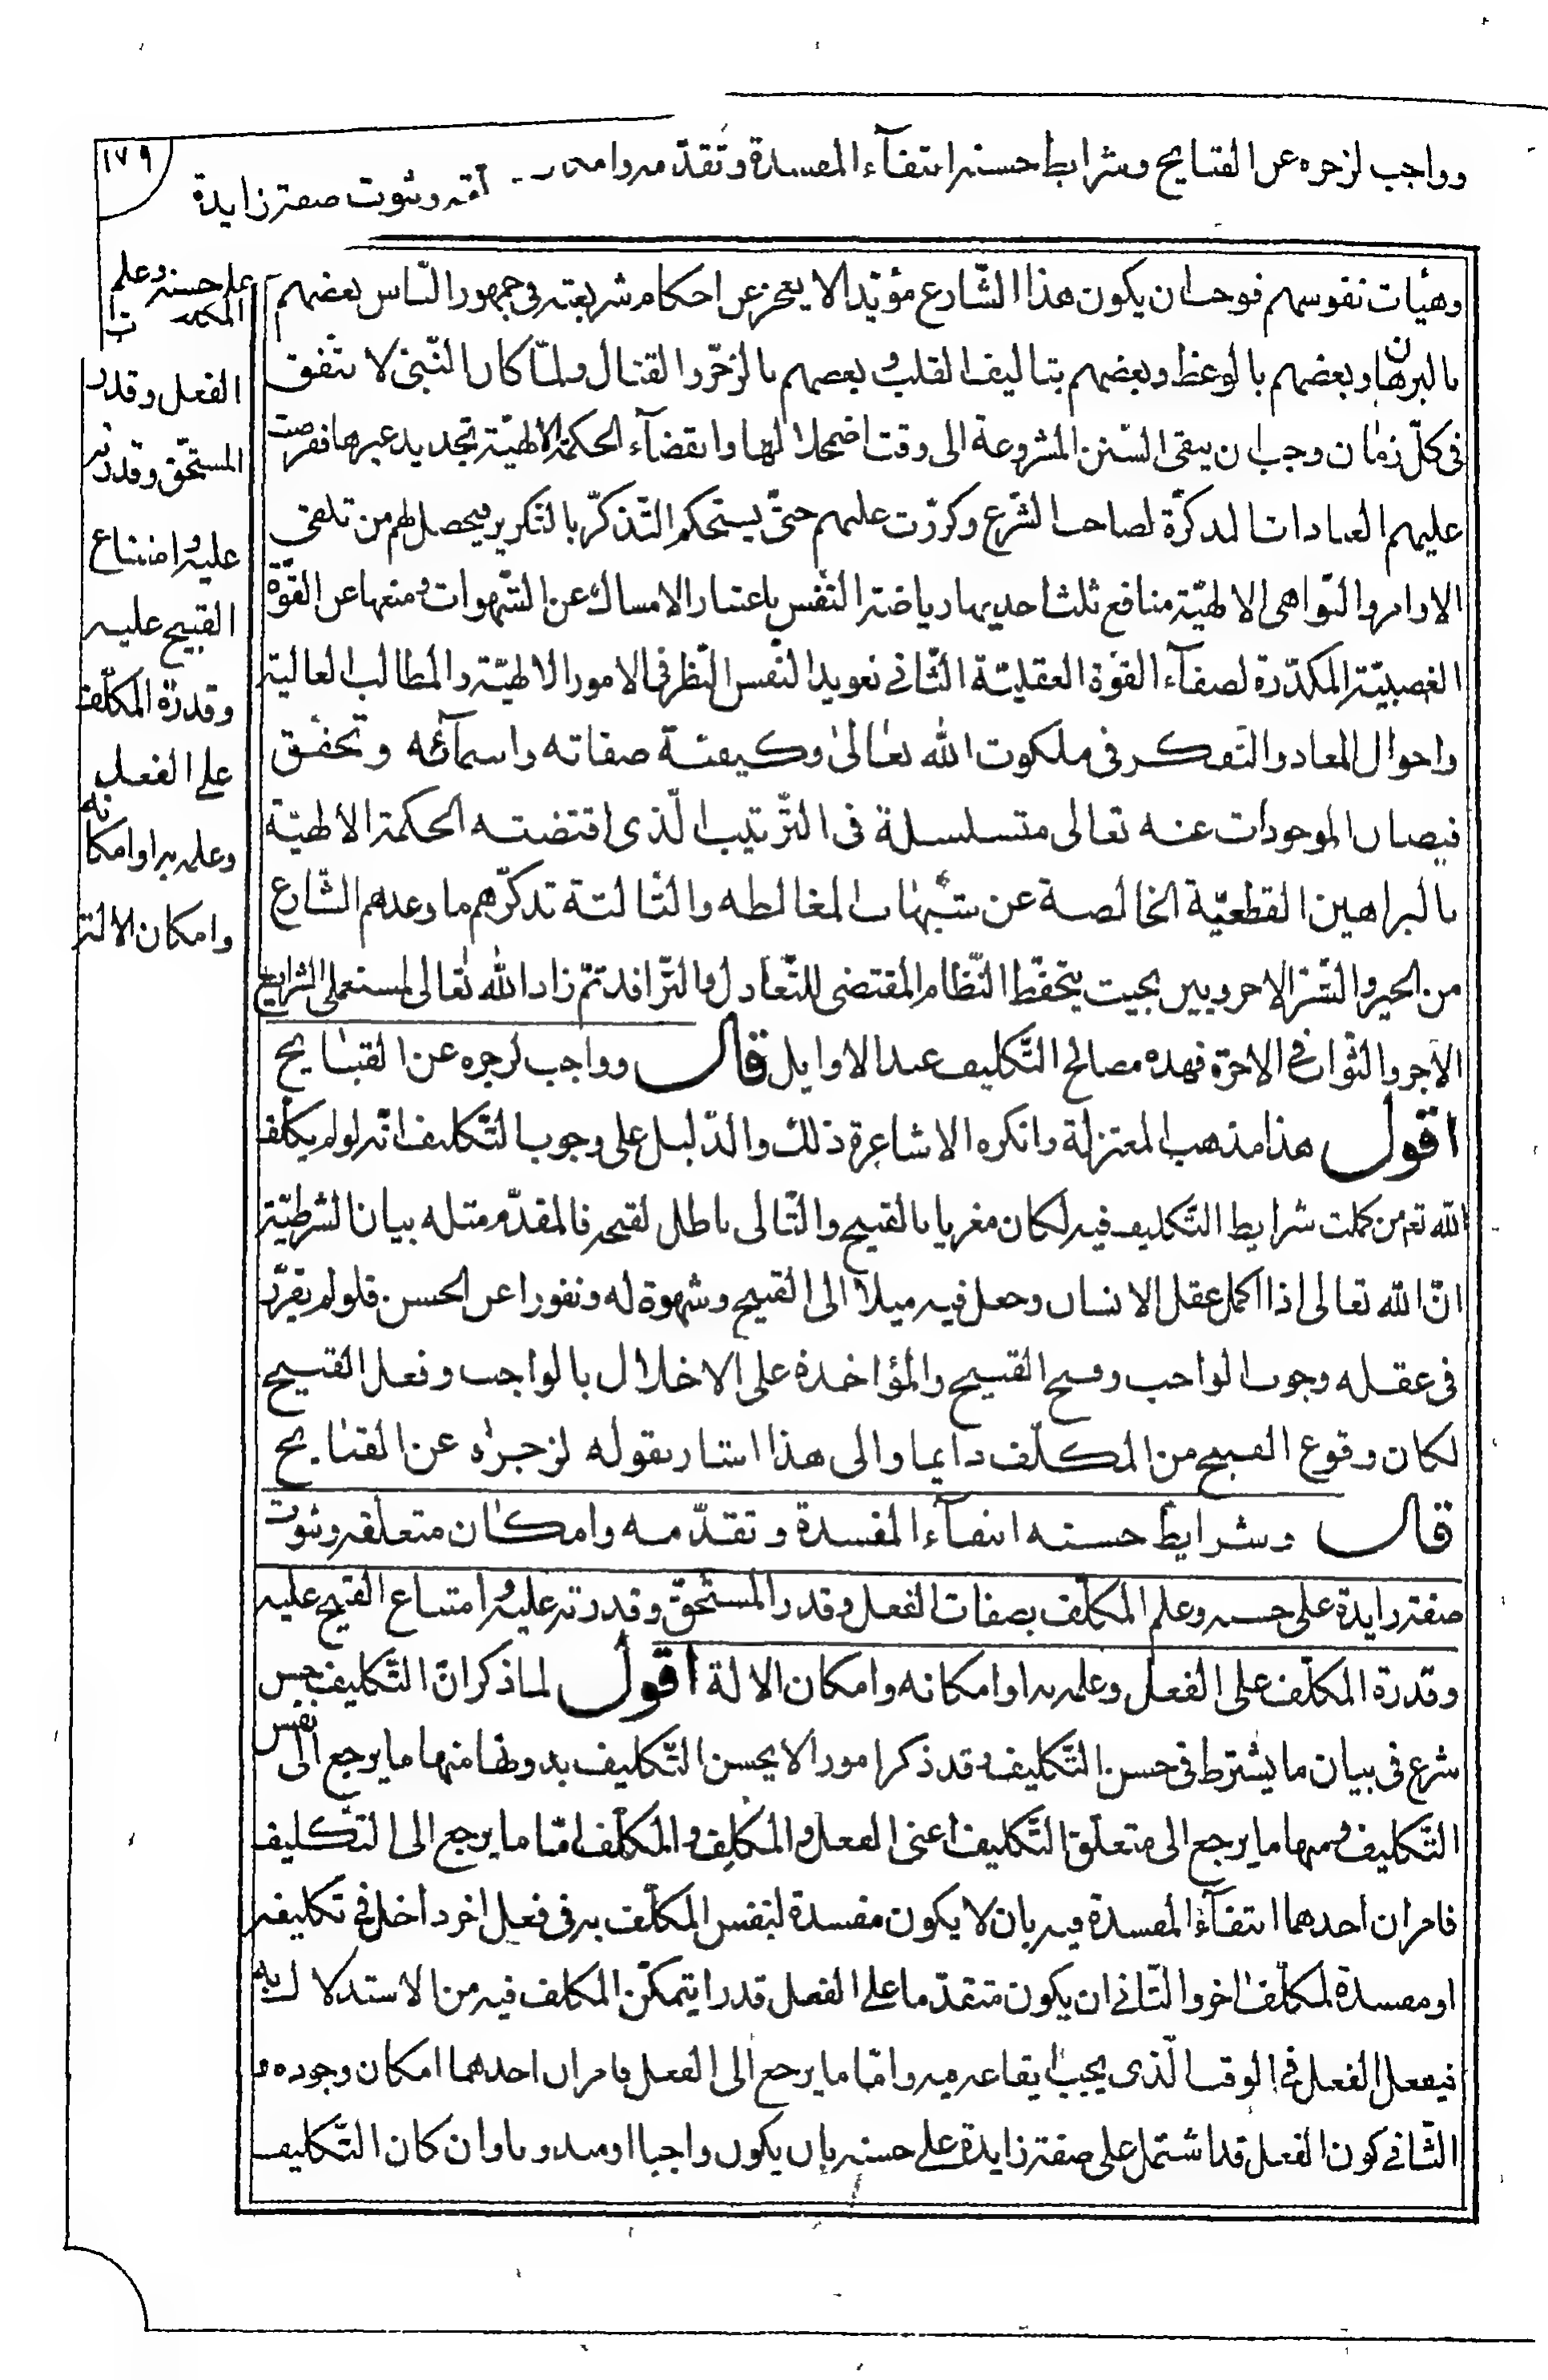 ١٧٩
وواجب لزجره عن القبايح وشرايط حسنه انتفآء المفسدة وتقدّمه وامكان متعلقه وثبوت صفة زايدة
على حسنه وعلم المكلف
الفعل وقدر
المستحّق وقدرته
عليه وامتناع
القبيح عليه
وقدرة المكلّف
على الفعل
وعلمه به او امكانه
وامكان الالة
وهيأت نفوسهم فوجب ان يكون هذا الشّارع مؤيّدا لا يعجز عن احكام شريعته فى جمهور النّاس بعضهم
بالبرهان وبعضهم بالوعظ وبعضهم بتاليف القلب وبعضهم بالزجر والقتال ولمّا كان النّبىّ لا يتّفق
فى كلّ زمان وجب ان يبقى السّنن المشروعة الى وقت اضمحلالها واقتضآء الحكمة الالهيّة تجديد غيرها ففرضت
عليهم العبادات المذكّرة لصاحب الشّرع وكرّرت عليهم حتىّ يستحكم التّذكّر بالتّكرير فيحصل لهم من تلقى
الاوامر والنّواهى الالهيّة منافع ثلث احديها رياضة النّفس باعتبار الامساك عن الشّهوات ومنعها عن القوّة
الغضبيّة المكدّرة لصفآء القوّة العقليّة الثّانى تعويد النّفس النّظر فى الامور الالهيّة والمطالب العالية
واحوال المعاد والتّفكر فى ملكوت الله تعالى وكيفيّة صفاته واسمآئه وتحقّق
فيضان الموجودات عنه تعالى متسلسلة فى التّرتيب الّذى اقتضته الحكمة الالهيّة
بالبراهين القطعيّة الخالصة عن شبهات المغالطه والثّالثة تذكّرهم ما وعدهم الشّارع
من الخير والشّرّ الاخرويين بحيث يتحفّظ النّظام المقتضى للتّعادل والتّرافد ثمّ زاد الله تعالى لمستعملى الشرايع
الاجر والثّواب فى الاخرة فهذه مصالح التّكليف عند الاوايل قال وواجب لزجره عن القبايح
اقول هذا مذهب المعتزلة وانكره الاشاعرة ذلك والدّليل على وجوب التّكليف انّه لو لم يكلّف
الله تعم من كملت شرايط التّكليف فيه لكان مغريا بالقبيح والتّالى باطل لقبحه فالمقدّم مثله بيان الشرطيّة
انّ الله تعالى اذا اكمل عقل الانسان وجعل فيه ميلا الى القبيح وشهوة له ونفورا عن الحسن فلو لم يقرّر
فى عقله وجوب الواجب وقبح القبيح والمؤاخذة على الاخلال بالواجب وفعل القبيح
لكان وقوع القبيح من المكلّف دايما والى هذا اشار بقوله لزجره عن القبايح
قال وشرايط حسنه انتفآء المفسدة وتقدّمه وامكان متعلّقه وثبوت
صفة زايدة على حسنه وعلم المكلّف بصفات الفعل وقدر المستحقّ وقدرته عليه وامتناع القبيح عليه
وقدرة المكلّف على الفعل وعلمه به او امكانه وامكان الالة اقول لما ذكر انّ التّكليف حسن
شرع فى بيان ما يشترط فى حسن التّكليف وقد ذكر امورا لا يحسن التّكليف بدونها منها ما يرجع الى نفس
التّكليف ومنها ما يرجع الى متعلّق التّكليف اعنى الفعل والمكلِّف والمكلَّف امّا ما يرجع الى التّكليف
فامران احدهما انتفآء المفسدة فيه بان لا يكون مفسدة لنفس المكلّف به فى فعل اخر داخل فى تكليفه
او مفسدة لمكلّف اخر والثّانى ان يكون متقدّما على الفعل قدرا يتمكّن المكلف فيه من الاستدلال به
فيفعل الفعل فى الوقت الّذى يجب ايقاعه فيه وامّا ما يرجع الى الفعل فامران احدهما امكان وجوده و
الثّانى كون الفعل قد اشتمل على صفة زايدة على حسنه بان يكون واجبا او مندوبا وان كان التّكليف